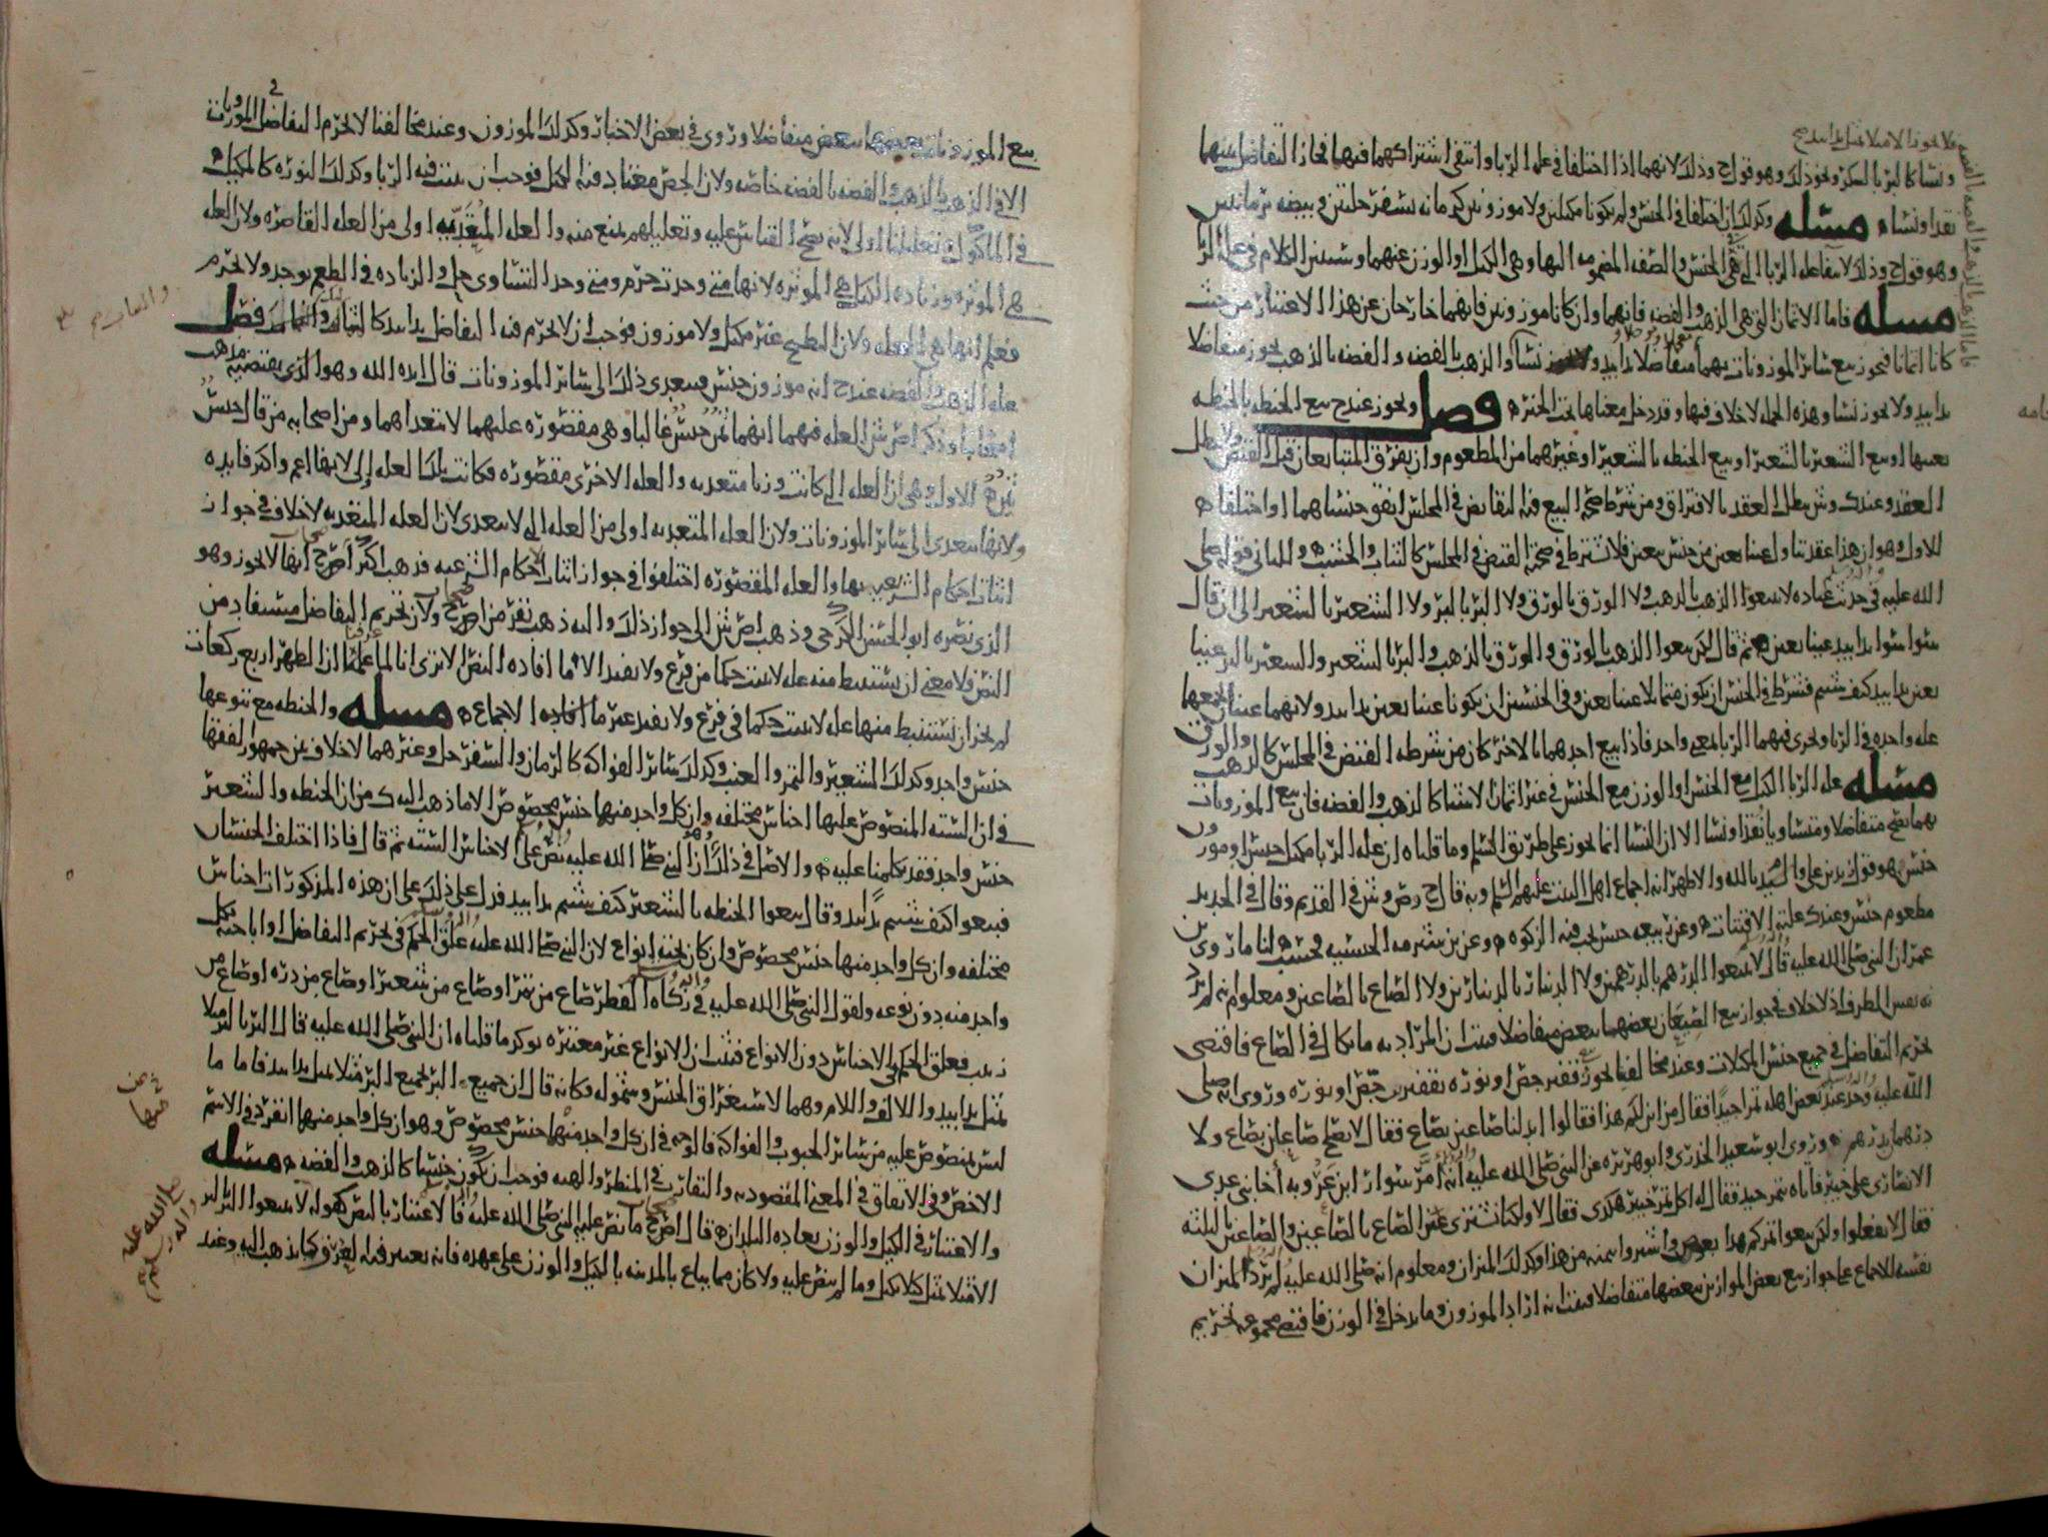 ونسا كالبر بالسكر ونحو ذلك وهو قول ح وذلك لانهما اذا اختلفا في عله الربا وانتفى اشتراكهما فيها فجاز التفاضل بينهما
نقدا ونساء مسله وكذلك ان اختلفا في الجنس ولم يكونا مكيلين ولا موزونين كرمانه بسفرجلتين وبيضه برمانتين
وهو قول ح وذلك لانتفا عله الربا التي هي الجنس والصفه المضمومه اليها وهي الكيل او الوزن عنهما وسنبين الكلام في عله الربا
مسله فاما الاثمان التي هي الذهب والفضه فانهما وان كانا موزونين فانهما خارجان عن هذا الاعتبار من حيث
كانا اثمانا فيجوز بيع سائر الموزونات بهما متفاضلا يدا بيد ونسا والذهب بالفضه والفضه بالذهب يجوز متفاضلا
يدا بيد ولا يجوز نسا وهذه الجمله لا خلاف فيها وقد دخل معناها تحت الخبر فصل ويجوز عند ح بيع الحنطه بالحنطه
بعينها او بيع الشعير بالشعير او بيع الحنطه بالشعير او غيرهما من المطعوم وان يفرق المتبايعان قبل القبض ولا يبطل
العقد وعند ك وش يبطل العقد بالافتراق ومن شرط صحه البيع فيه التقابض في المجلس اتفق جنساهما او اختلفا
للاول وهو ان هذا عقد تناول عينا بعين من جنس بعين فلا يشترط في صحته القبض في المجلس كالثياب والخشب وللثاني قوله صلى
الله عليه في حديث عباده لا تبيعوا الذهب بالذهب ولا الورق بالورق ولا البر بالبر ولا الشعير بالشعير الى ان قال
سوا سوا يدا بيد عينا بعين ثم قال لكن بيعوا الذهب بالورق والورق بالذهب والبر بالشعير والشعير بالبر عينا
بعين يدا بيد كيف شئتم فشرط في الجنس ان يكون متماثلا عينا بعين وفي الجنسين ان يكونا عينا بعين يدا بيد ولانهما عينان تجمعهما
عله واحده في الربا ويجري فيهما الربا لمعنى واحد فاذا بيع احدهما بالاخر كان من شرطه القبض في المجلس كالذهب والورق
مسله عله الربا الكيل مع الجنس او الوزن مع الجنس في غير اثمان الاشيا كالذهب والفضه فان بيع الموزونات
بهما يصح متفاضلا ومتساويا نقدا ونسا الا ان النسا انما يجوز على طريق السلم وما قلناه ان عله الربا مكيل جنس او موزون
جنس هو قول زيد بن علي والسيد بالله والاظهر انه اجماع اهل البيت عليهم السلم وبه قال ح وص وش في القديم وقال في الجديد
مطعوم جنس وعند ك علته الاقتيات وعن ربيعه جنس يجب فيه الزكوه وعن بن شبرمه الجنسيه فحسب لنا ما روى بن
عمر ان النبي صلى الله عليه قال لا تبيعوا الدرهم بالدرهمين ولا الدينار بالدينارين ولا الصاع بالصاعين ومعلوم انه لم يرد
به نفس الظرف اذ لا خلاف في جواز بيع الصيعان بعضهما ببعض متفاضلا فثبت ان المراد به ما يكال في الصاع فاقتضى
تحريم التفاضل في جميع جنس المكيلات وعند مخالفنا يجوز قفيز جص او نوره بقفيزين جص او نوره وروي انه صلى
الله عليه وجد عند بعض اهله تمرا جيدا فقال من اين لكم هذا فقالوا ابدلنا صاعين بصاع فقال لا يصلح صاعان بصاع ولا
درهما بدرهم وروى ابو سعيد الخدري وابو هريره عن النبي صلى الله عليه انه امر سواد ابن غزوه اخا بني عدي
الانصاري على خيبر فاتاه بتمر جيد فقال له اكل تمر خيبر هكذى فقال لا ولكنا نشتري الصاع بالصاعين والصاعين بالثلثه
فقال لا تفعلوا ولكن بيعوا تمركم هذا بعوض واشتروا بثمنه من هذا وكذلك الميزان ومعلوم انه صلى الله عليه لم يرد الميزان
نفسه للاجماع على جواز بيع بعض الموازين ببعضها متفاضلا فيثبت انه اراد الموزون وما يدخل في الوزن فاقتضى مجموعه تحريم
بيع الموزونات بعضها ببعض متفاضلا وروي في بعض الاخبار وكذلك الموزون وعند مخالفنا لا يحرم التفاضل في الموزونات
الا في الذهب بالذهب والفضه بالفضه خاصه ولان الجص معتاد فيه الكيل فوجب ان يثبت فيه الربا وكذلك النوره كالمكيل
في الماكول وتعليلنا اولى لانه يصح القياس عليه وتعليلهم يمنع منه والعله المتعديه اولى من العله القاصره ولان العله
هي الموثره وزياده الكيل هي الموثره لانها متى وجدت حرم ومتى وجد التساوي حل والزياده في الطعم يوجد ولا يحرم
فعلم انها هي العله ولان البطيخ غير مكيل ولا موزون فوجب ان لا يحرم فيه التفاضل يدا بيد كالثياب فصل
عله الذهب والفضه عند ح انه موزون جنس فيتعدى ذلك الى سائر الموزونات قال ايده الله وهو الذي يقتضيه مذهب
اصحابنا وذكر اص ش ان العله فيهما انهما ثمن جنس غالبا وهي مقصوره عليهما لا تتعداهما ومن اصحابه من قال جنس
ثمن الاول وهي ان العله التي كانت وزنا متعديه والعله الاخرى مقصوره فكانت تلك العله اولى لانها اعم واكثر فايده
ولانها تتعدى الى سائر الموزونات ولان العله المتعديه اولى من العله التي لا تتعدى لان العله المتعديه لا خلاف في جواز
اثبات احكام الشرعيه بها والعله المقصوره اختلفوا في جواز اثبات الاحكام الشرعيه فذهب اكثر اص ح انها لا يجوز وهو
الذي نصره ابو الحسن الكرخي وذهب اص ش الى جواز ذلك واليه ذهب نفر من اص ح ولان تحريم التفاضل مستفاد من
النص فلا معنى ان يستنبط منه عله لا تثبت حكما من فرع ولا يفيد الا ما افاده النص الا ترى انا لما علمنا ان الظهر اربع ركعات
لم يجز ان نستنبط منها عله لا تثبت حكما في فرع ولا يفيد غير ما افاده الاجماع مسله والحنطه مع تنوعها
جنس واحد وكذلك الشعير والتمر والعنب وكذلك سائر الفواكه كالرمان والسفرجل وغيرهما لا خلاف بين جمهور الفقها
في ان السته المنصوص عليها اجناس مختلفه وان كل واحد منها جنس مخصوص الا ما ذهب اليه ك من ان الحنطه والشعير
جنس واحد فقد تكلمنا عليه والاصل في ذلك ان النبي صلى الله عليه نص على الاجناس السته ثم قال فاذا اختلف الجنسان
فبيعوا كيف شئتم يدا بيد وقال بيعوا الحنطه بالشعير كيف شئتم يدا بيد فدل على ذلك على ان هذه المذكورات اجناس
مختلفه وان كل واحد منها جنس مخصوص وان كان تحته انواع لان النبي صلى الله عليه علق الحكم في تحريم التفاضل او اباحته بكل
واحد منه دون نوعه ولقول النبي صلى الله عليه في زكاه الفطر صاع من بر او صاع من شعير او صاع من ذره او صاع من
زبيب فعلق الحكم بالاجناس دون الانواع فثبت ان الانواع غير معتبره يوكد ما قلناه ان النبي صلى الله عليه قال البر بالبر مثلا
بمثل يدا بيد والالف واللام وهما لاستغراق الجنس وشموله وكانه قال ان جميع البر بجميع البر مثلا بمثل يدا بيد فاما ما
ليس بمنصوص عليه من سائر الحبوب والفواكه فالوجه في ان كل واحد منها جنس مخصوص وهو ان كل واحد منها انفرد في الاسم
الاخص وفي الاتفاق في المعنى المقصود به والتقارب في المنظر والهيه فوجب ان يكون جنسا كالذهب والفضه مسله
والاعتبار في الكيل والوزن بعاده البلدان قال اص ح ما نص عليه النبي صلى الله عليه فالاعتبار بالنص كقوله لا تبيعوا البر بالبر
الا مثلا بمثل كيلا بكيل وما لم ينص عليه ولا كان مما يباع بالمدينه بالكيل والوزن على عهده فانه يعتبر فيه العرف وكما يذهب اليه وعند